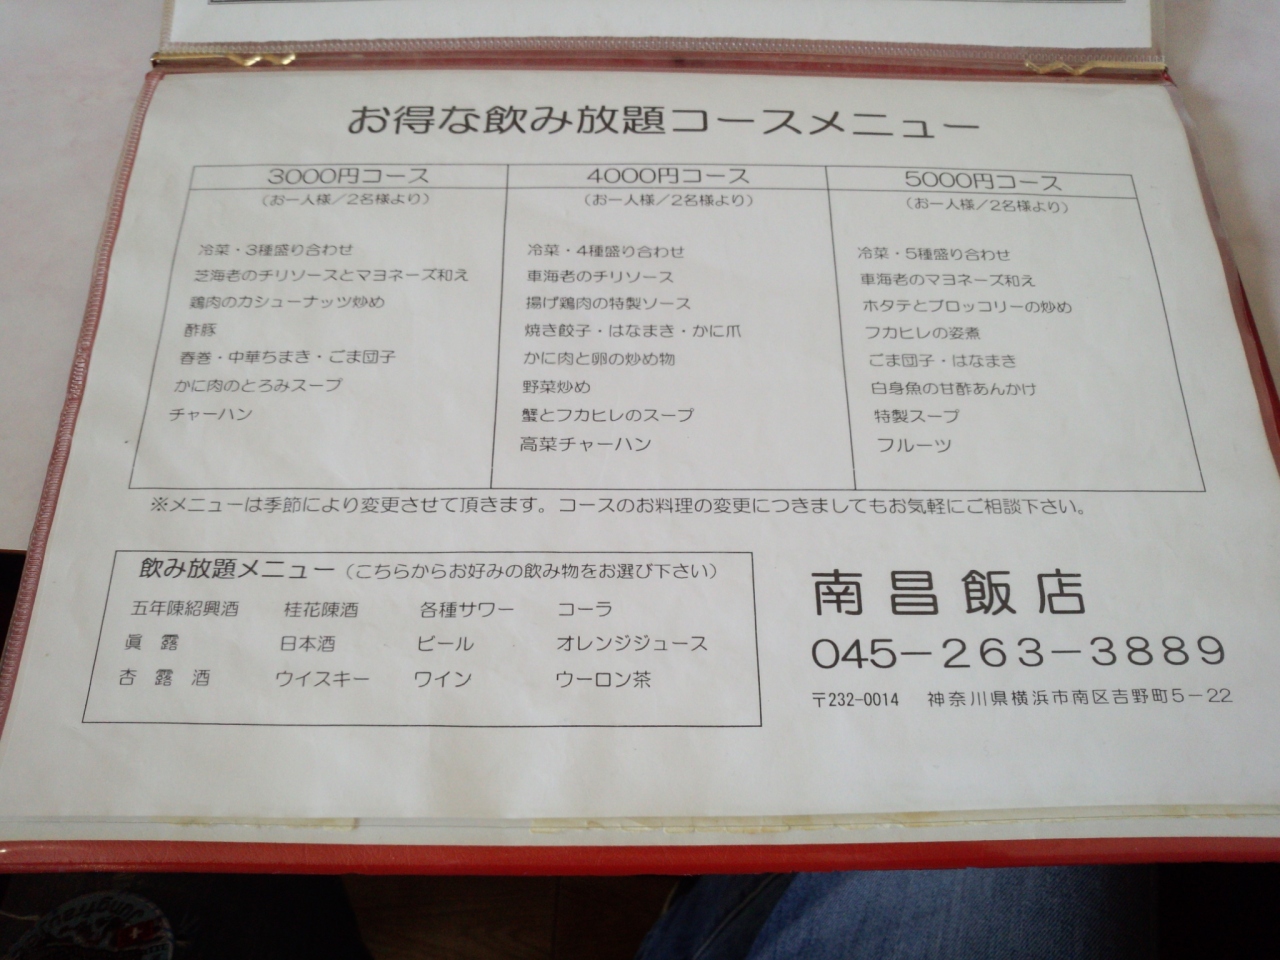 お得な飲み放題コースメニュー
3000円コース
(お一人様／2名様より)
冷菜・3種盛り合わせ
芝海老のチリソースとマヨネーズ和え
鶏肉のカシューナッツ炒め
酢豚
春巻・中華ちまき・ごま団子
かに肉のとろみスープ
チャーハン
4000円コース
(お一人様／2名様より)
冷菜・4種盛り合わせ
車海老のチリソース
揚げ鶏肉の特製ソース
焼き餃子・はなまき・かに爪
かに肉と卵の炒め物
野菜炒め
蟹とフカヒレのスープ
高菜チャーハン
5000円コース
(お一人様／2名様より)
冷菜・5種盛り合わせ
車海老のマヨネーズ和え
ホタテとブロッコリーの炒め
フカヒレの姿煮
ごま団子・はなまき
白身魚の甘酢あんかけ
特製スープ
フルーツ
※メニューは季節により変更させて頂きます。コースのお料理の変更につきましてもお気軽にご相談下さい。
飲み放題メニュー（こちらからお好みの飲み物をお選び下さい）
五年陳紹興酒 桂花陳酒 各種サワー コーラ
眞露 日本酒 ビール オレンジジュース
杏露酒 ウイスキー ワイン ウーロン茶
南昌飯店
045－263－3889
〒232-0014 神奈川県横浜市南区吉野町5－22